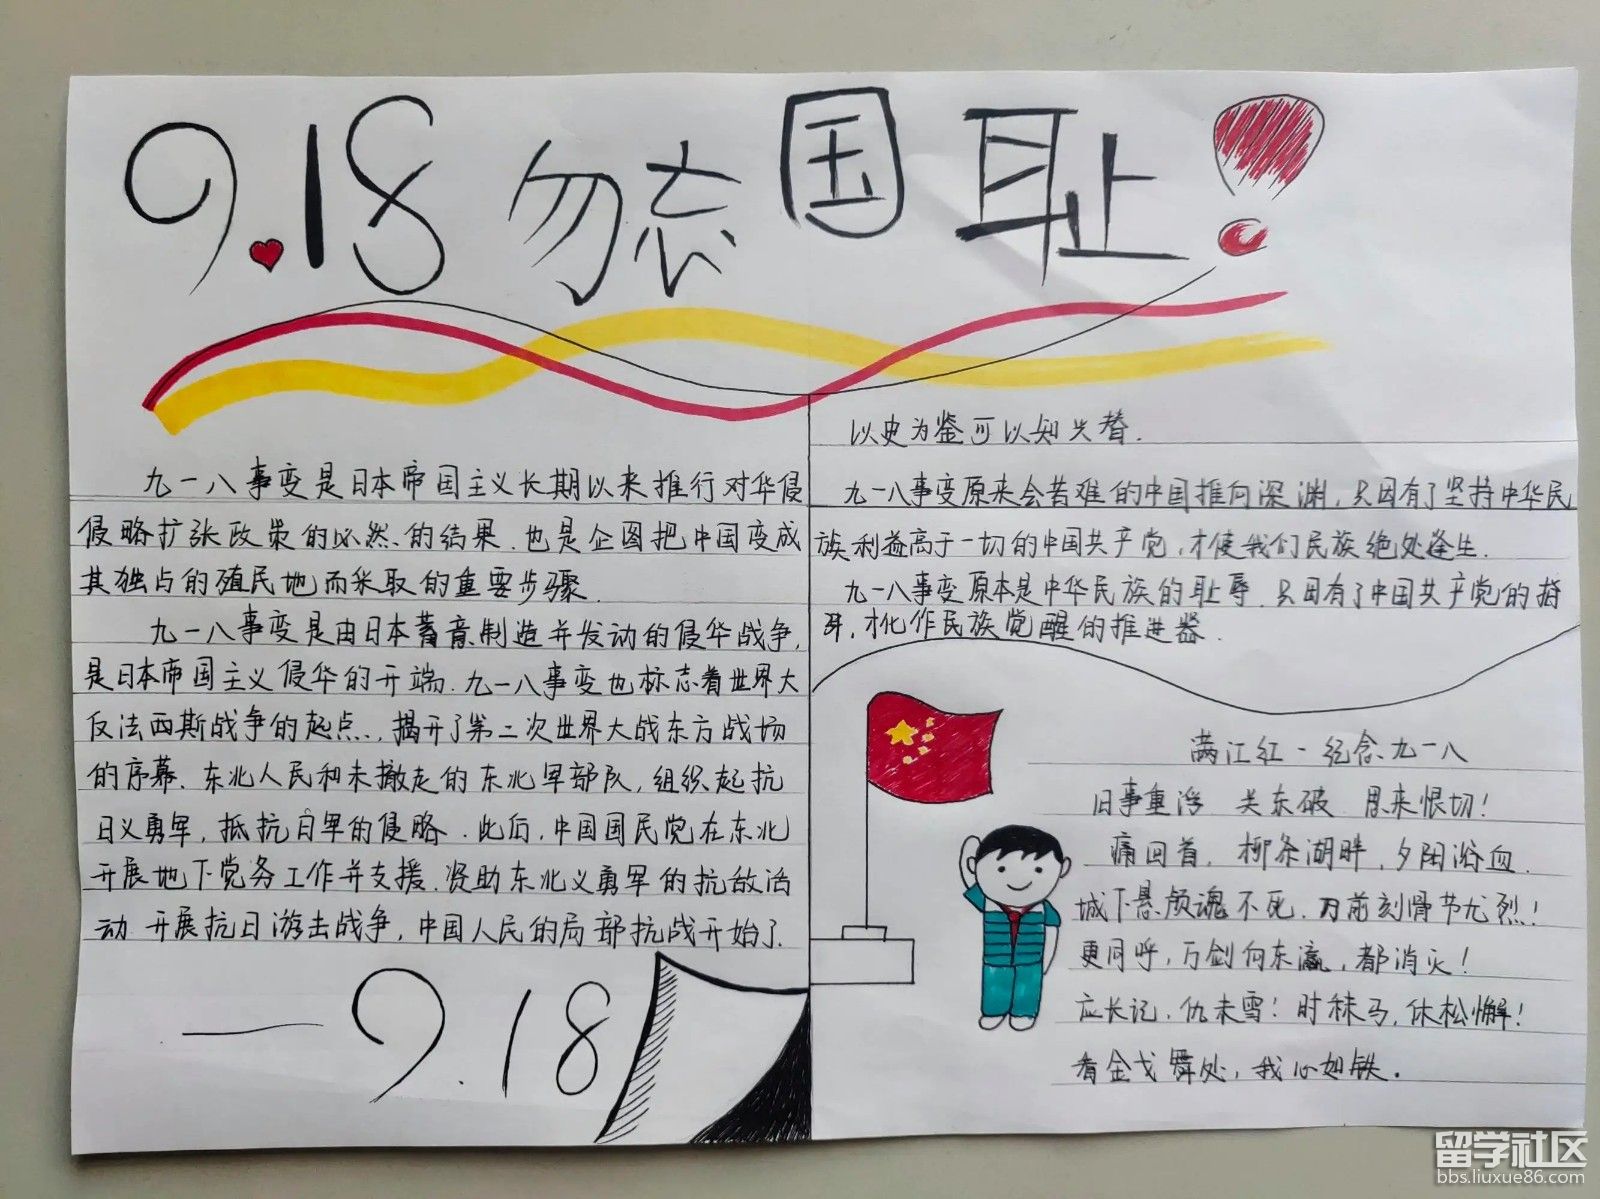 9.18勿忘国耻!
九一八事变是日本帝国主义长期以来推行对华侵
侵略扩张政策的必然的结果.也是企图把中国变成
其独占的殖民地而采取的重要步骤.
九一八事变是由日本蓄意制造并发动的侵华战争,
是日本帝国主义侵华的开端.九一八事变也标志着世界大
反法西斯战争的起点.,揭开了第二次世界大战东方战场
的序幕.东北人民和未撤走的东北军部队,组织起抗
日义勇军,抵抗日军的侵略.此后,中国国民党在东北
开展地下党务工作并支援.资助东北义勇军的抗敌活
动 开展抗日游击战争,中国人民的局部抗战开始了.
—9.18
以史为鉴可以知兴替.
九一八事变原来会昔难的中国推向深渊,只因有了坚持中华民
族利益高于一切的中国共产党,才使我们民族绝处逢生.
九一八事变原本是中华民族的耻辱.只因有了中国共产党的
,才化作民族觉醒的推进器.
满江红-纪念九一八
旧事重浮 关东破 思来恨切!
痛回首,柳条湖畔,夕阳浴血.
城下悬颅魂不死.刀前刻骨节尤烈!
更同呼,万剑向东瀛,都消灭!
应长记,仇未雪!时秣马,休松懈!
看金戈舞处,我心如铁.
留学社区
bbs.liuxue86.com